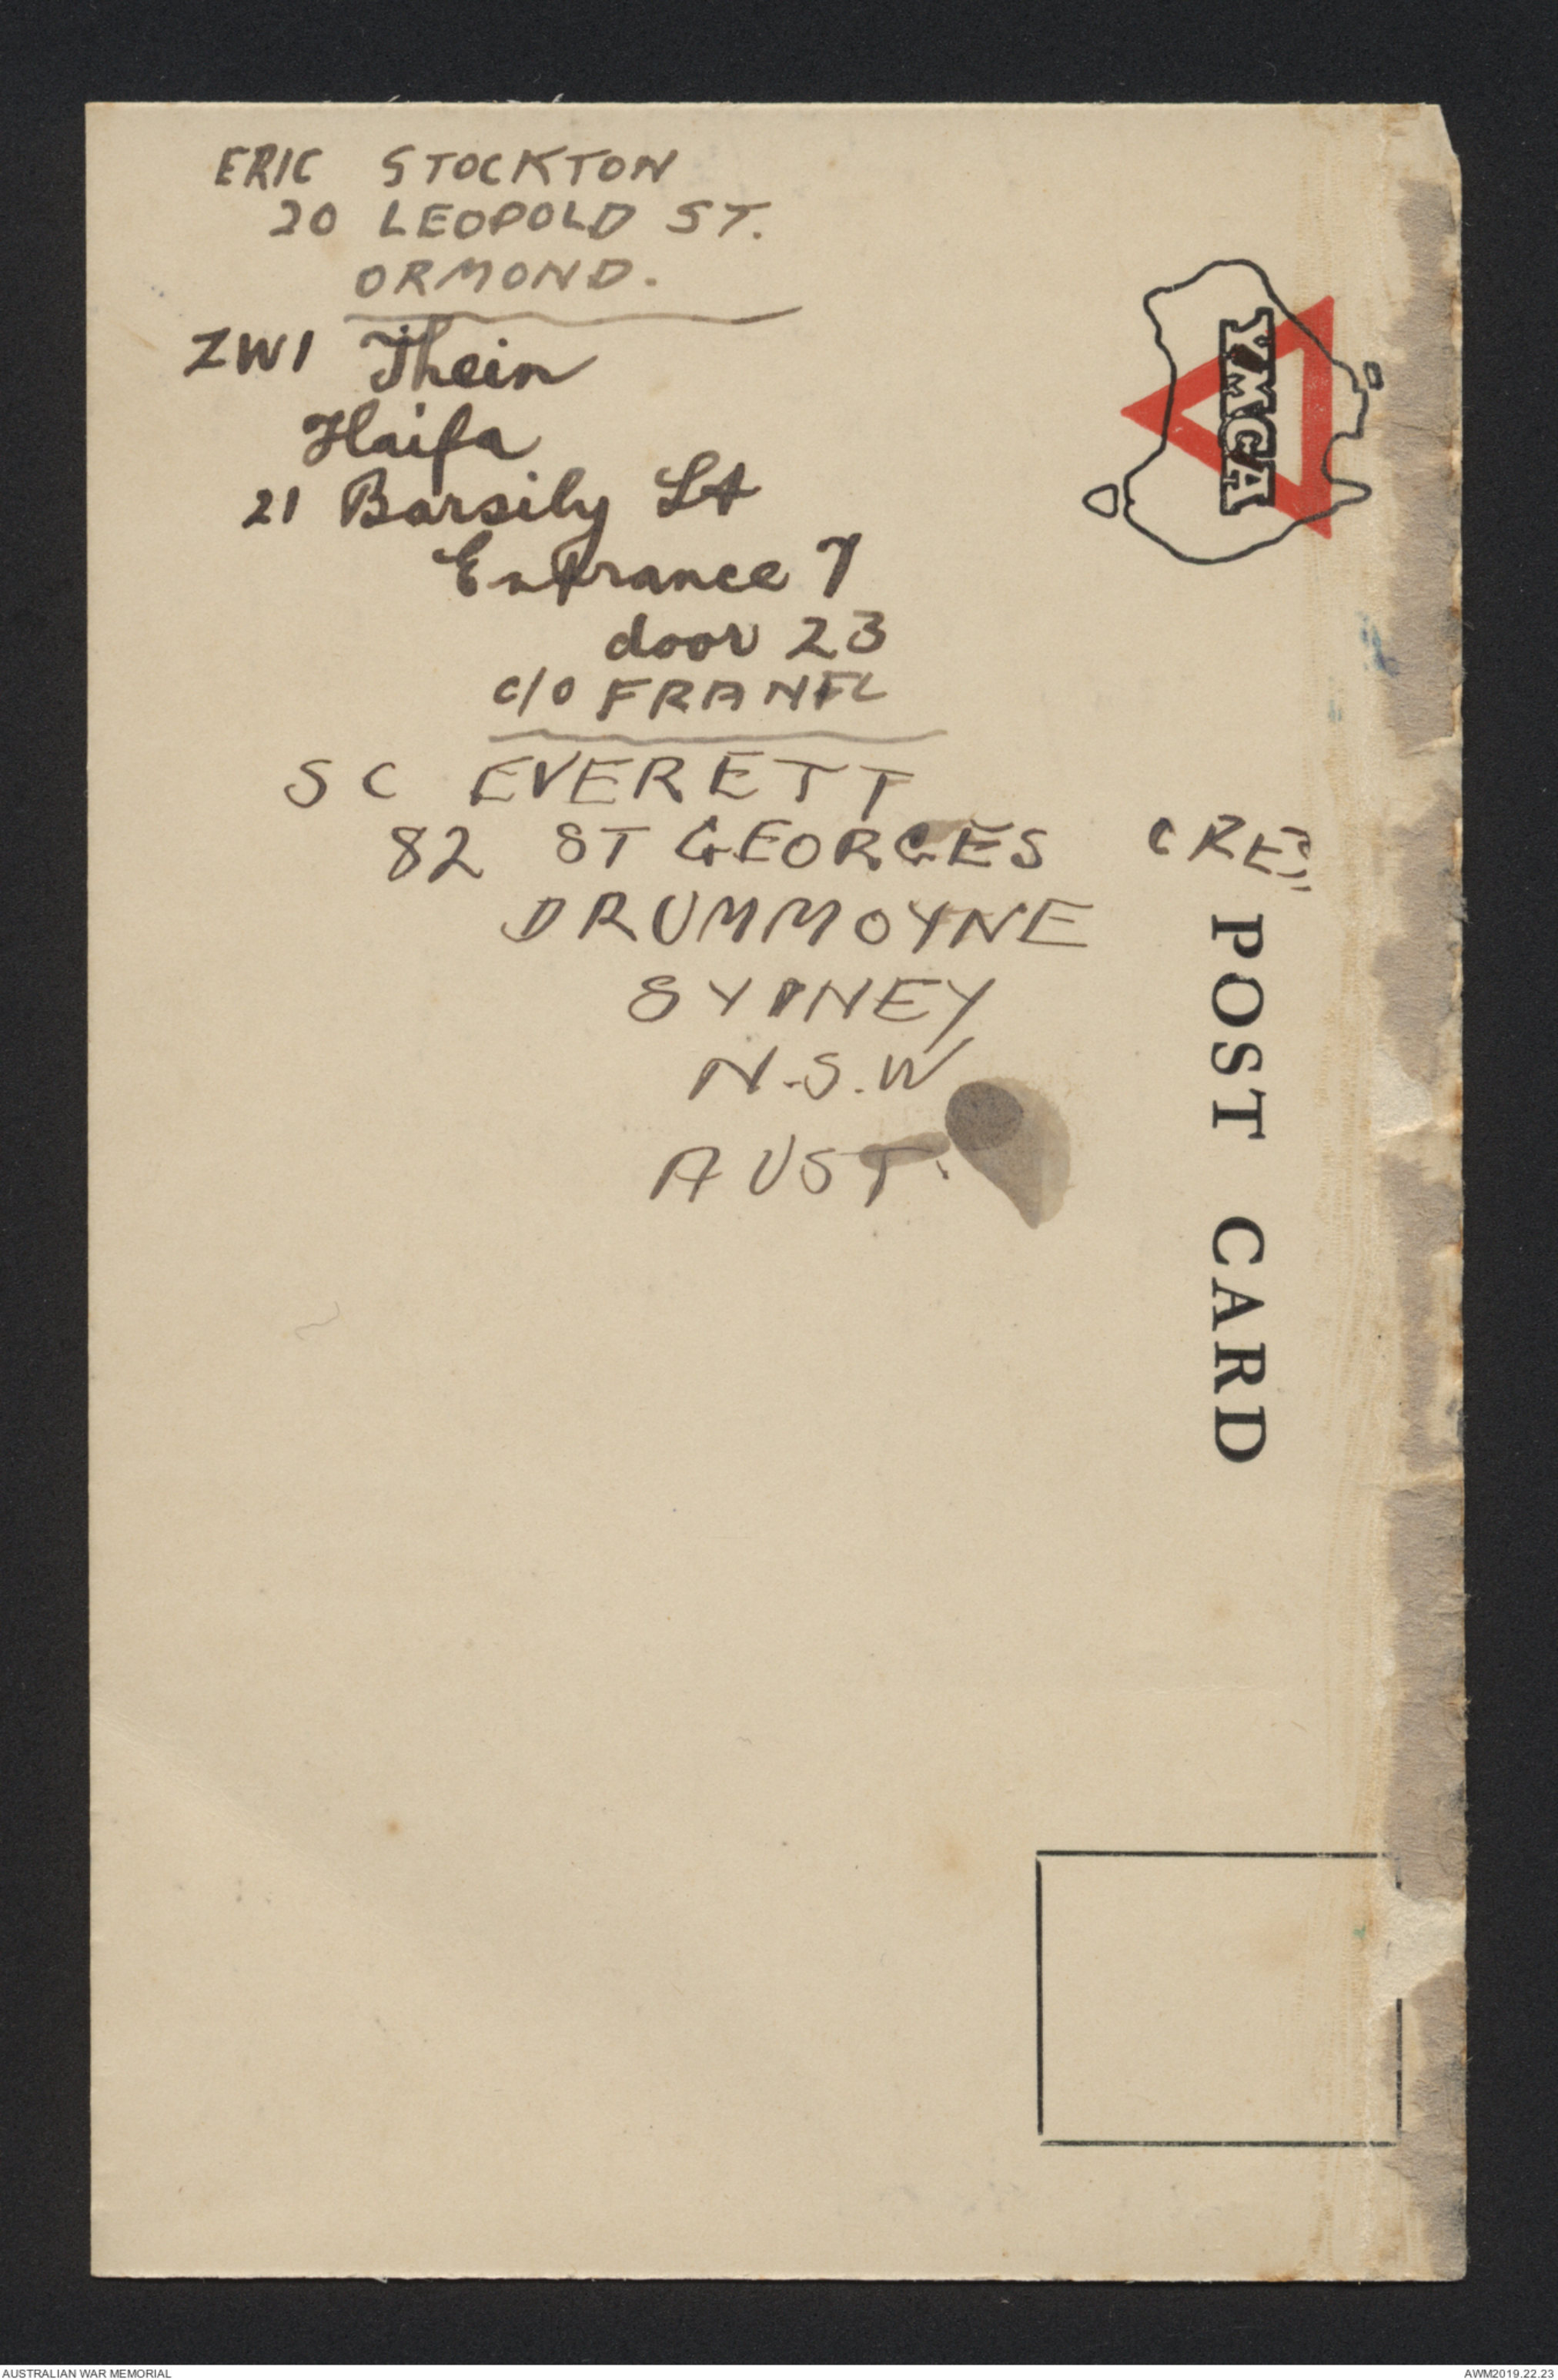 ERIC STOCKTON
20 LEOPOLD ST.
ORMOND.
ZWI Thein
Haifa
21 Barsily St
Entrance 7
door 23
c/o
SC EVERETT
82 ST GEORGES CRES
DRUMMOYNE
SYDNEY
N.S.W
AUST.
YMCA
POST CARD
AUSTRALIAN WAR MEMORIAL
AWM2019.22.23